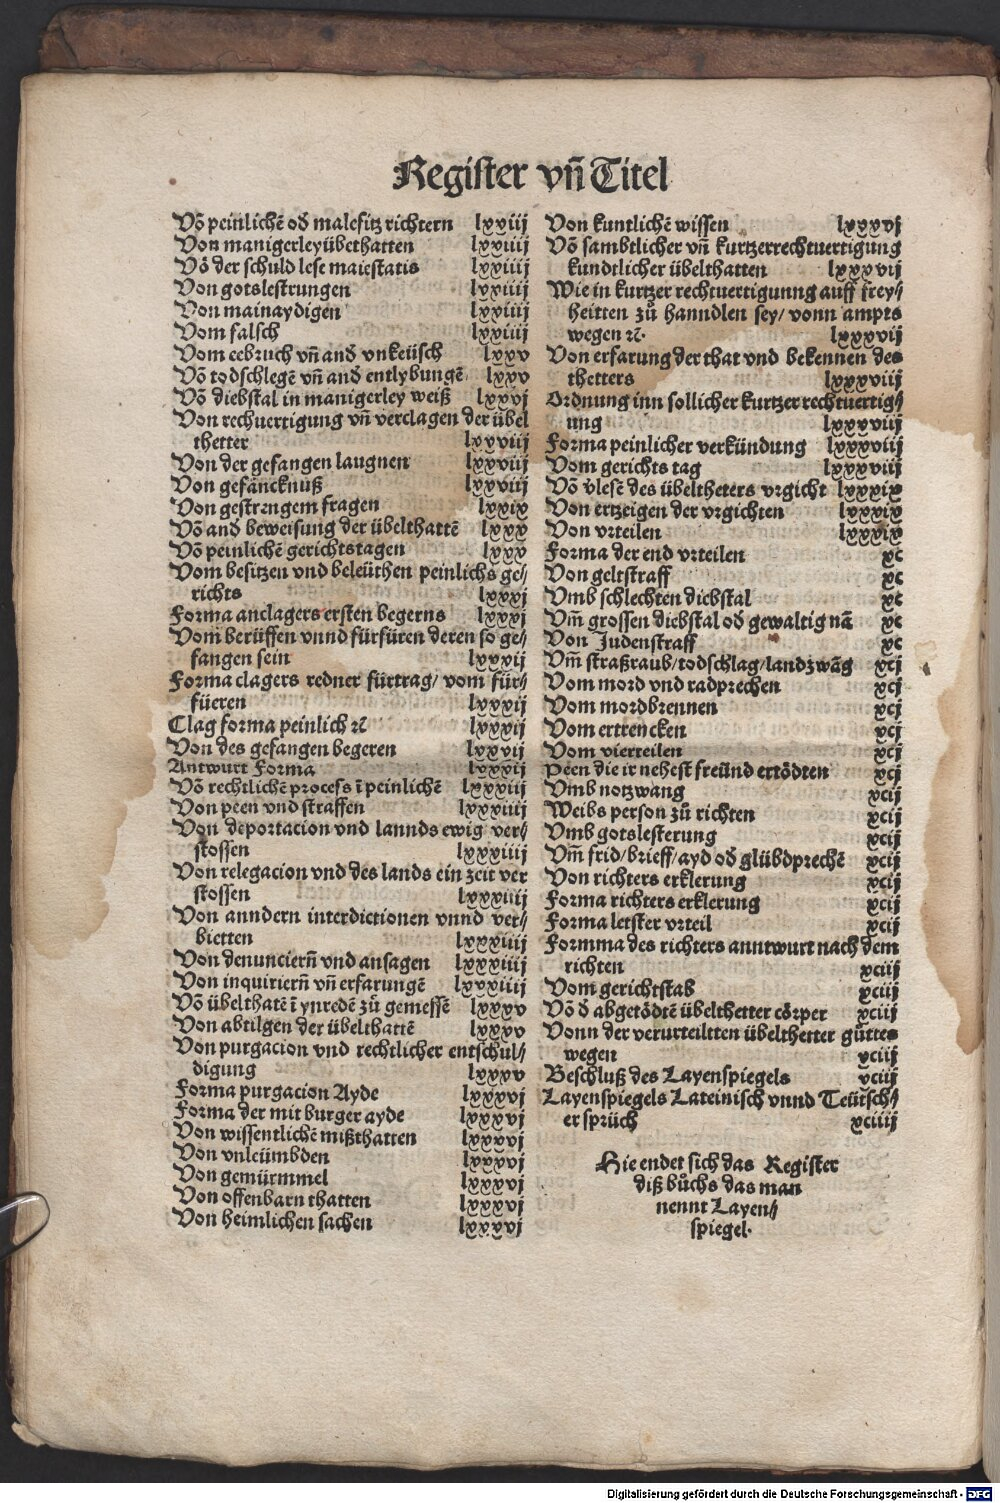 Register vn̄ Titel
Võ peinlichẽ oď malefitz richtern lxxiij
Von manigerley übelthatten lxxiiij
Võ der schuld lese maiestatis lxxiiij
Von gotslestrungen lxxiiij
Von mainaydigen lxxiiij
Vom falsch lxxiiij
Vom eebruch vn̄ anď vnkeüsch lxxv
Võ todschlegẽ vn̄ anď entlybungẽ lxxv
Võ diebstal in manigerley weiß lxxvj
Von rechuertigung vn̄ verclagen der übel
thetter lxxviij
Von der gefangen laugnen lxxviij
Von gefäncknuß lxxviij
Von gestrengem fragen lxxix
Võ anď beweisung der übelthattẽ lxxx
Võ peinlichẽ gerichtstagen lxxx
Vom besitzen vnd beleüthen peinlichs ge⸗
richts lxxxj
Forma anclagers ersten begerns lxxxj
Vom berüffen vnnd fürfüren deren so ge⸗
fangen sein lxxxij
Forma clagers redner fürtrag/ vom für⸗
füeren lxxxij
Clag forma peinlich ⁊c̃ lxxxij
Von des gefangen begeren lxxxvij
Antwurt Forma lxxxij
Võ rechtlichẽ process ĩ peinlichẽ lxxxiij
Von peen vnd straffen lxxxiiij
Von deportacion vnd lannds ewig ver⸗
stossen lxxxiiij
Von relegacion vnd des lands ein zeit ver
stossen lxxxiiij
Von anndern interdictionen vnnd ver⸗
bietten lxxxiiij
Von denunciern̄ vnd ansagen lxxxiiij
Von inquiriern̄ vn̄ erfarungẽ lxxxiiij
Võ übelthatẽ ĩ ynredẽ zů gemessẽ lxxxv
Von abtilgen der übelthattẽ lxxxv
Von purgacion vnd rechtlicher entschul⸗
digung lxxxv
Forma purgacion Ayde lxxxvj
Forma der mit burger ayde lxxxvj
Von wissentlichẽ mißthatten lxxxvj
Von vnleümbden lxxxvj
Von gemürmmel lxxxvj
Von offenbarn thatten lxxxvj
Von heimlichen sachen lxxxvj
Von kuntlichẽ wissen lxxxvj
Võ sambtlicher vn̄ kurtzerrechtuertigung
kundtlicher übelthatten lxxxvij
Wie in kurtzer rechtuertigunng auff frey⸗
heitten zů hanndlen sey/ vonn ampts
wegen ⁊c̃. lxxxvij
Von erfarung der that vnd bekennen des
thetters lxxxviij
Ordnung inn sollicher kurtzer rechtuertig⸗
ung lxxxviij
Forma peinlicher verkündung lxxxviij
Vom gerichts tag lxxxviij
Võ vlesẽ des übeltheters vrgicht lxxxix
Von ertzeigen der vrgichten lxxxix
Von vrteilen lxxxix
Forma der end vrteilen xc
Von geltstraff xc
Vmb schlechten diebstal xc
Vm̄ grossen diebstal oď gewaltig nã xc
Von Judenstraff xc
Vm̄ straßraub/todschlag/landzwãg xcj
Vom mord vnd radprechen xcj
Vom mordbrennen xcj
Vom ertrencken xcj
Vom vierteilen xcj
Peen die ir nehest freünd ertödten xcj
Vmb notzwang xcij
Weibs person zů richten xcij
Vmb gotslesterung xcij
Vm̄ frid/brieff/ayd oď glübdprechẽ xcij
Von richters erklerung xcij
Forma richters erklerung xcij
Forma letster vrteil xcij
Formma des richters anntwurt nach dem
richten xciij
Vom gerichtstab xciij
Võ ď abgetödtẽ übelthetter cörper xciij
Vonn der verurteiltten übelthetter güttes
wegen xciij
Beschluß des Layenspiegels xciij
Layenspiegels Lateinisch vnnd Teütsch⸗
er sprüch xciiij
Hie endet sich das Register
diß bůchs das man
nennt Layen⸗
spiegel.
Digitalisierung gefördert durch die Deutsche Forschungsgemeinschaft - DFG